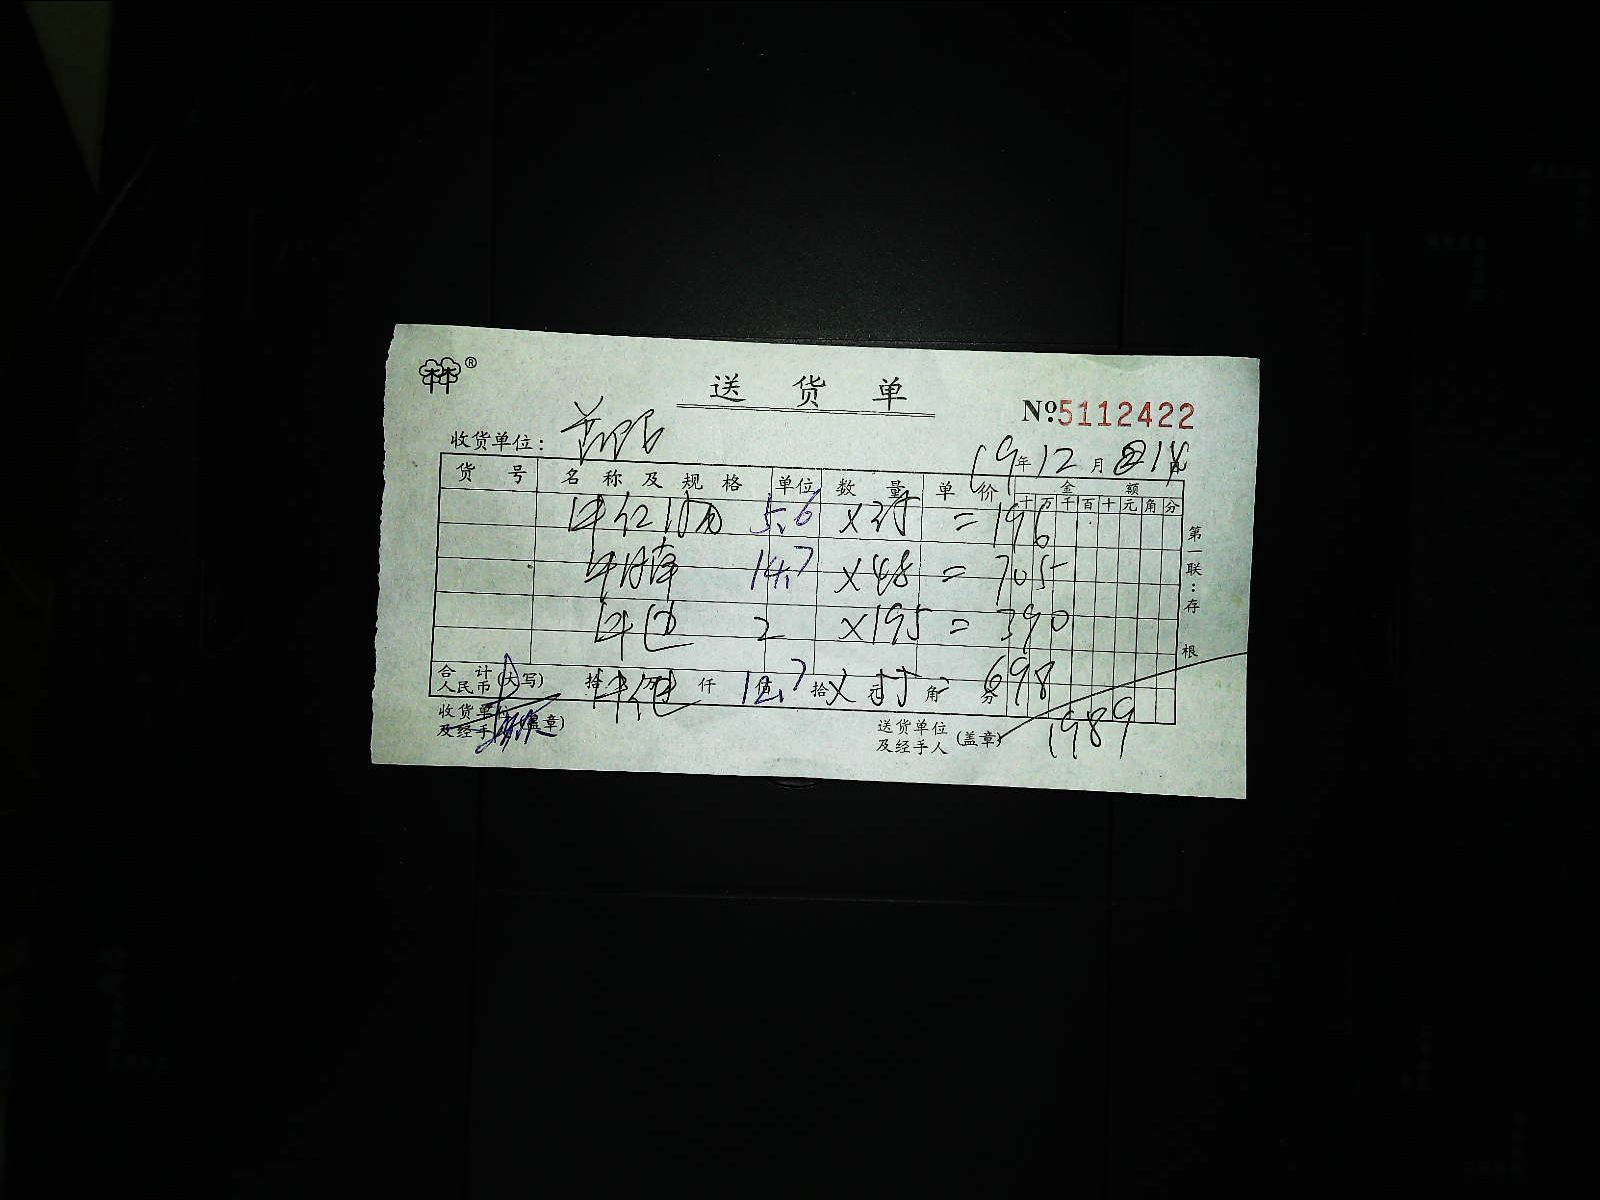 林®
送货单
№5112422
收货单位：
19年12月21日
货号 名称及规格 单位 数量 单价 金额
十万千百十元角分
5.6 ×35 =196
14.7 ×48 = 705
牛 2 ×195 = 390
合计 人民币(大写) 拾 万 仟 佰 拾 元 角 分
牛 12.7 × 55 = 698
收货单位及经手人(盖章)
送货单位及经手人(盖章) 1989
第一联：存根